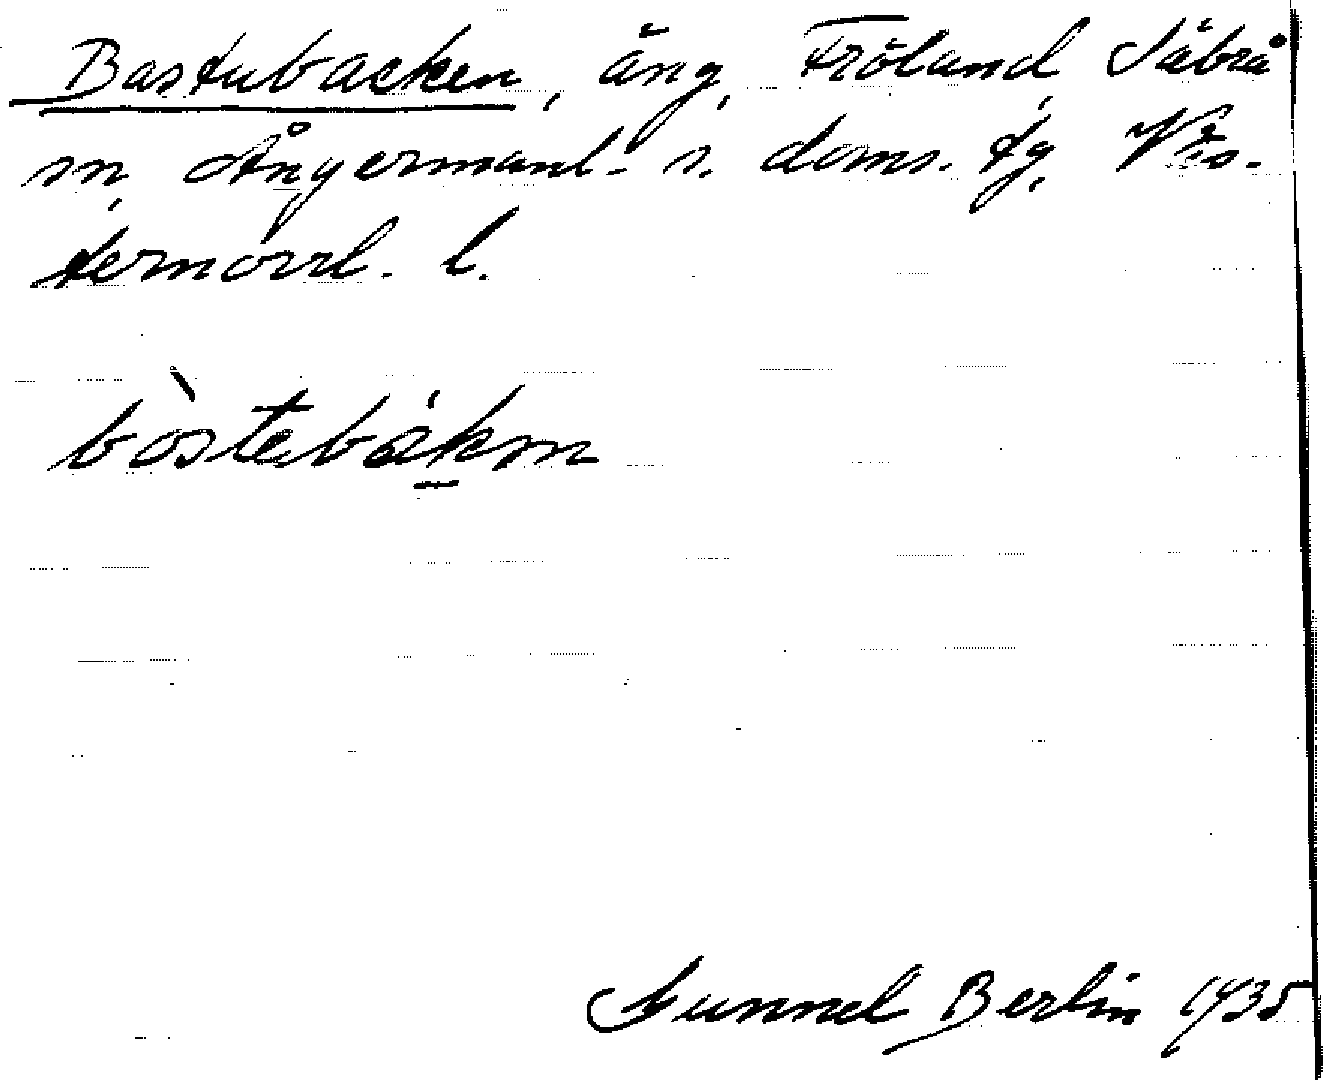 Bastubacken, äng, Fröland, Säbrå
sn, Ångermanl. s. doms. tg, Väs-
ternorrl. l.
bòstebákm
Gunnel Berlin 1935